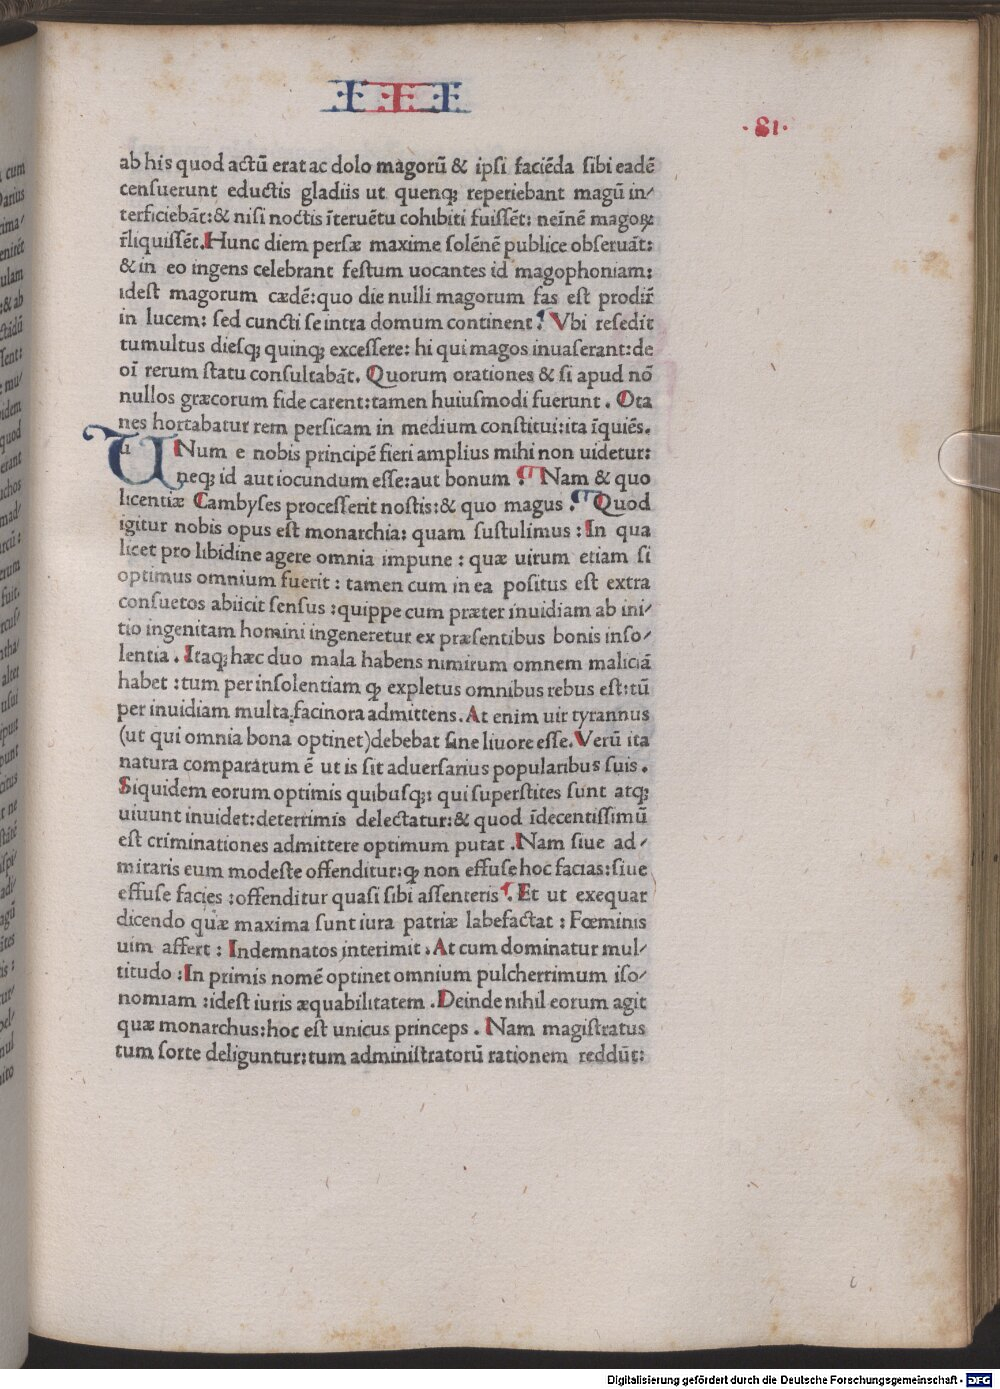 III
·81·
ab his quod actū erat ac dolo magorū & ipsi faciēda sibi eadē
censuerunt eductis gladiis ut quenqꝫ reperiebant magū in/
terficiebāt:& nisi noctis īteruētu cohibiti fuissēt: neīnē magoꝝ
r̄liquissēt. Hunc diem persæ maxime solēnē publice obseruāt:
& in eo ingens celebrant festum uocantes id magophoniam:
idest magorum cædē:quo die nulli magorum fas est prodir̄
in lucem: sed cuncti se intra domum continent. Vbi resedit
tumultus diesqꝫ quinqꝫ excessere: hi qui magos inuaserant:de
oī rerum statu consultabāt. Quorum orationes & si apud nō
nullos græcorum fide carent:tamen huiusmodi fuerunt. Ota
nes hortabatur rem persicam in medium constitui:ita īquiēs.
UNum e nobis principē fieri amplius mihi non uidetur:
neqꝫ id aut iocundum esse:aut bonum. Nam & quo
licentiæ Cambyses processerit nostis:& quo magus. Quod
igitur nobis opus est monarchia: quam sustulimus: In qua
licet pro libidine agere omnia impune: quæ uirum etiam si
optimus omnium fuerit: tamen cum in ea positus est extra
consuetos abiicit sensus:quippe cum præter inuidiam ab ini/
tio ingenitam homini ingeneretur ex præsentibus bonis inso/
lentia. Itaqꝫ hæc duo mala habens nimirum omnem maliciā
habet:tum per insolentiam ꝙ expletus omnibus rebus est:tū
per inuidiam multa facinora admittens. At enim uir tyrannus
(ut qui omnia bona optinet)debebat sine liuore esse. Verū ita
natura comparatum ē ut is sit aduersarius popularibus suis.
Siquidem eorum optimis quibusqꝫ: qui superstites sunt atqꝫ
uiuunt inuidet:deterrimis delectatur:& quod īdecentissimū
est criminationes admittere optimum putat. Nam siue ad/
miraris eum modeste offenditur:ꝙ non effuse hoc facias:siue
effuse facies:offenditur quasi sibi assenteris. Et ut exequar
dicendo quæ maxima sunt iura patriæ labefactat: Fœminis
uim affert: Indemnatos interimit. At cum dominatur mul/
titudo: In primis nomē optinet omnium pulcherrimum iso/
nomiam:idest iuris æquabilitatem. Deinde nihil eorum agit
quæ monarchus:hoc est unicus princeps. Nam magistratus
tum sorte deliguntur:tum administratorū rationem reddūt:
Digitalisierung gefördert durch die Deutsche Forschungsgemeinschaft - DFG